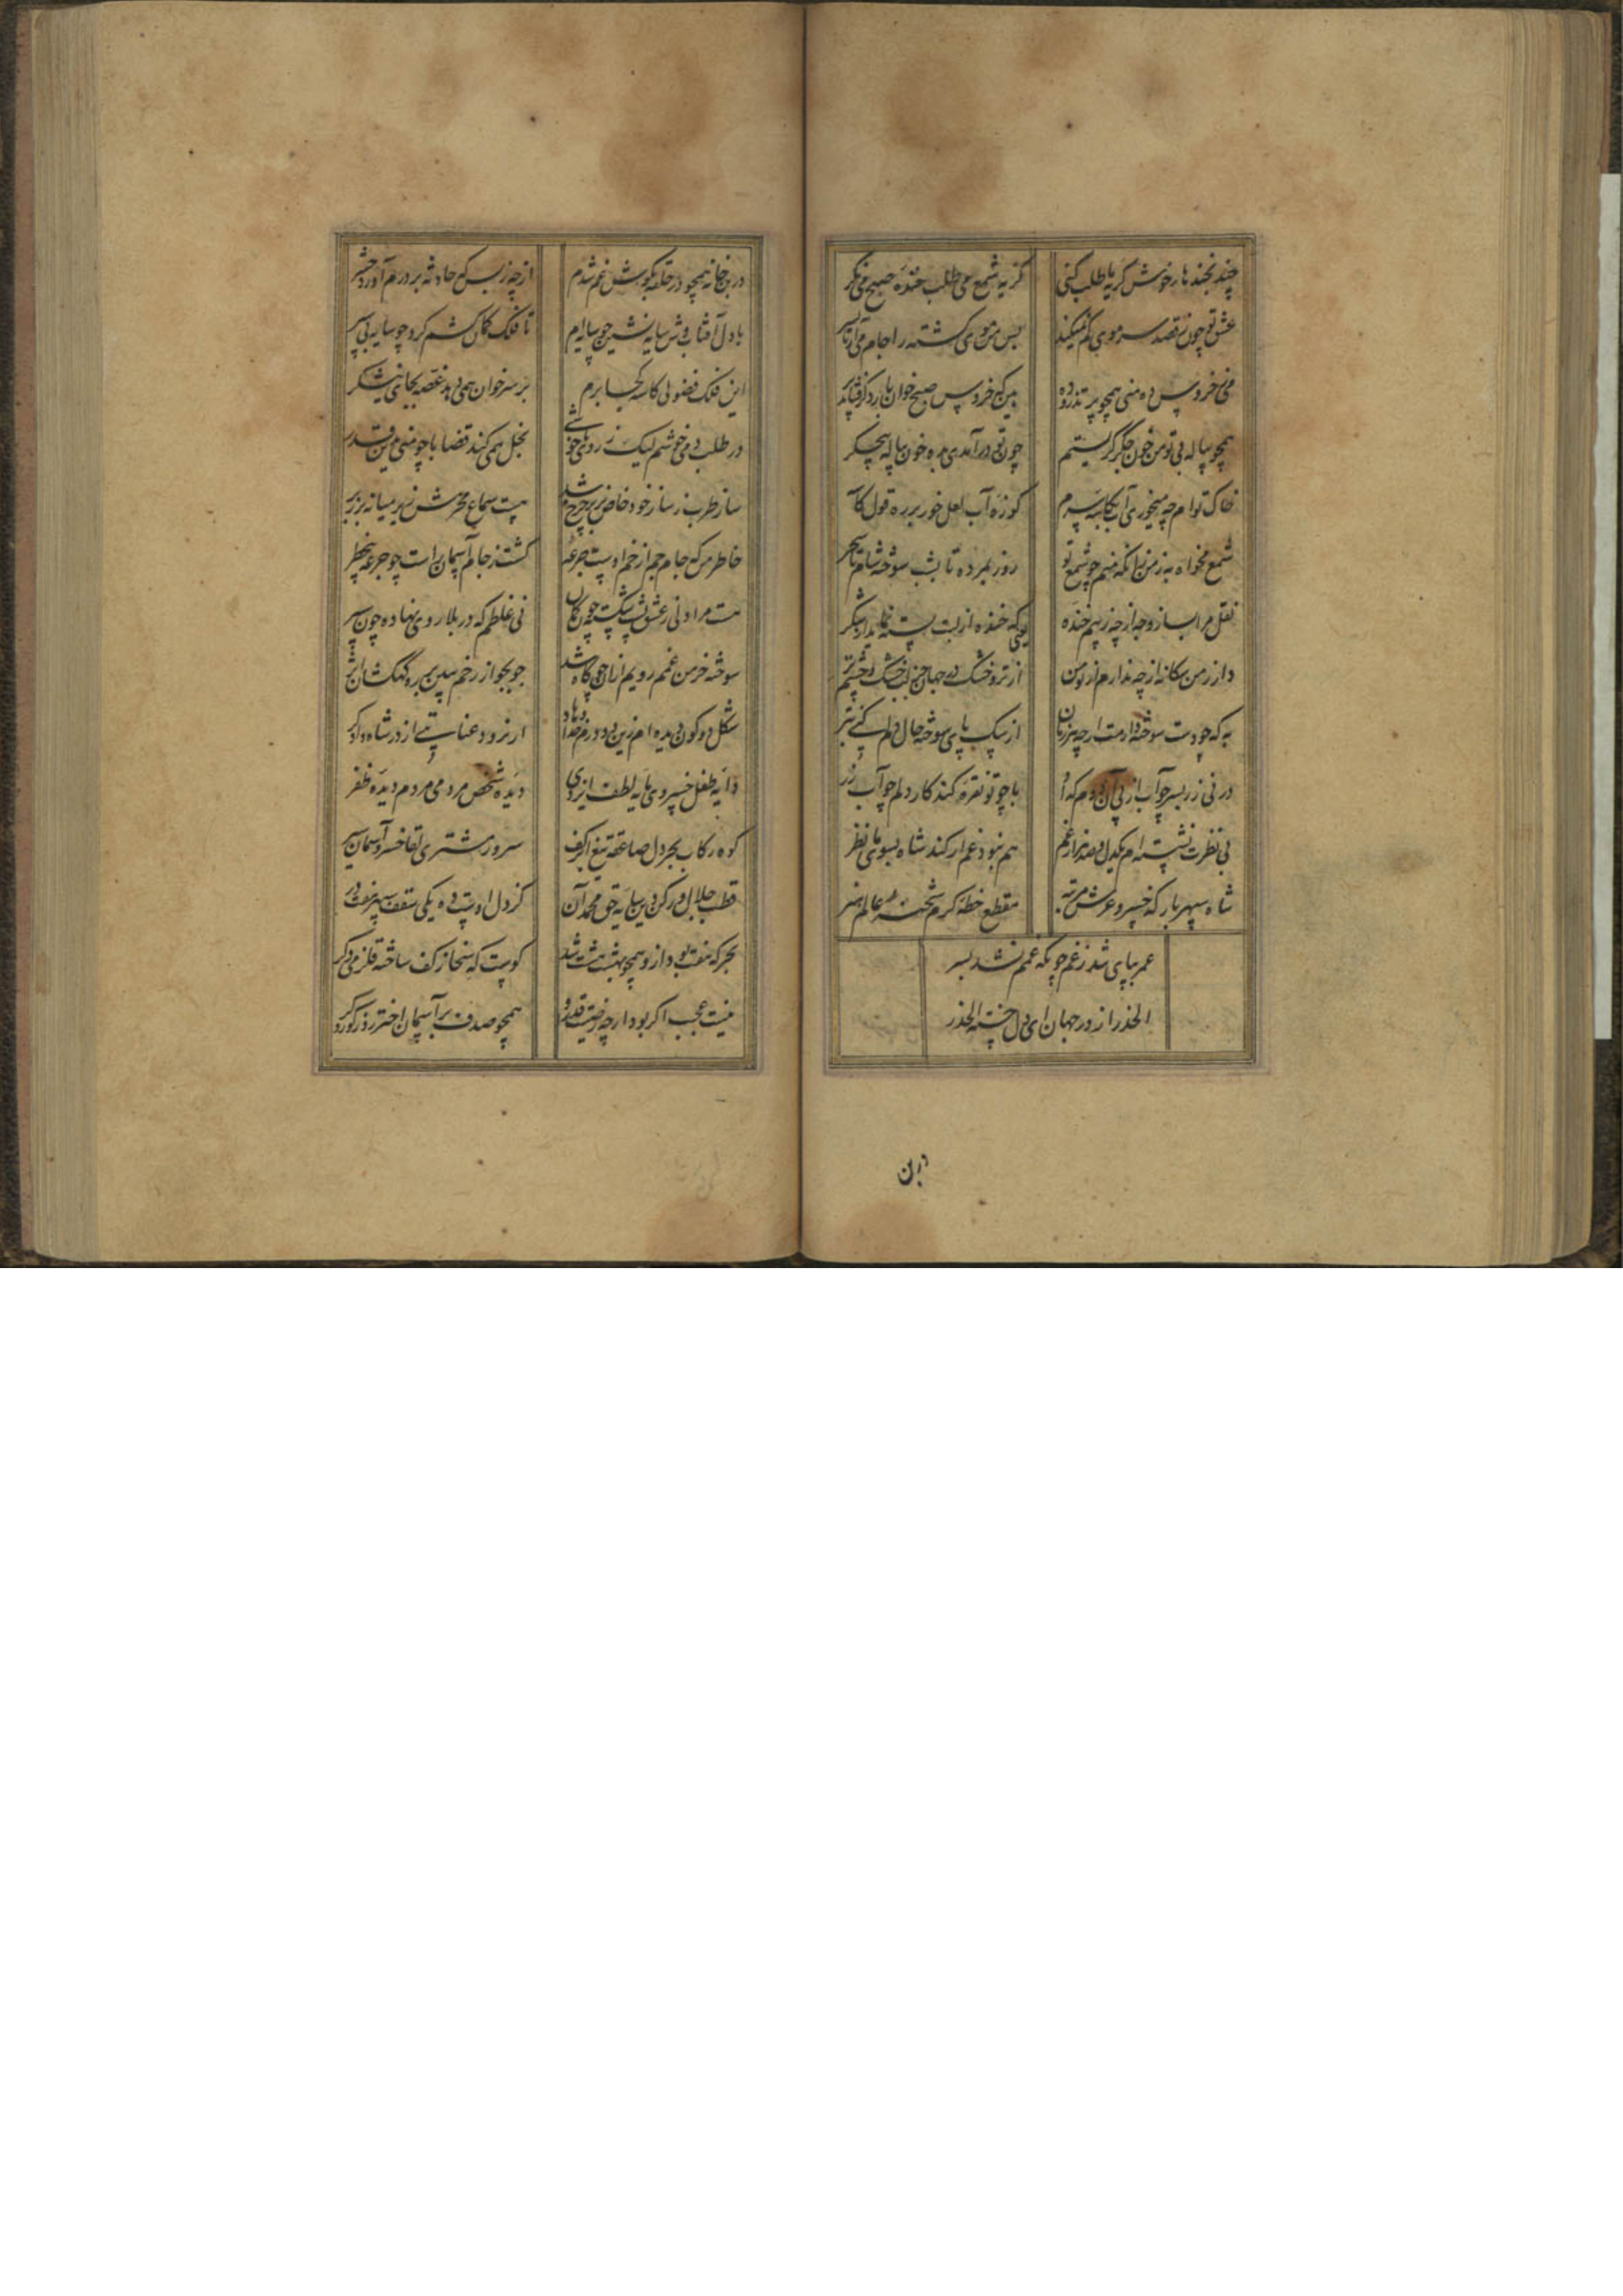 چند نجند بار خوش گریه طلب کنی گریه شمع می طلب خنده صبح می نگر
عشق تو چون قصد سر موی کم نمیکند بس من موی گشته را جام می آر تا بسر
می خروس ده منی همچو پر تذرو ده بین که خروس صبح خوان بار
همچو پیاله بی تو من خون جگر گریستم چون تو درآمدی مده خون پیاله
خاک توام چه میخوری آب کوزه آب لعل خور بر ره قول
شمع مخواه به ز من زانکه منم چو شمع تو روز بمرده تا بشب سوخته شام تا سحر
نقل مرا بساز وجه از چه زنیم خنده یعنی که خنده از لبت پسته نماید از شکر
دار ز من از چه ندارم از تو من از تر و خشک در جهان جز لب خشک و چشم تر
به که چو دست سوخته دارمت ارچه هر زمان از سوخته حال دلم کنی بتر
در نی زر بسر چو آب از پی آن دوم که او با چو تو نقره کند کار دلم چو آب زر
بی نظرت نشسته ام یکدل و صد هزار غم هم نبود غم ار کند شاه بسوی ما نظر
شاه سپهر بارگه خسرو عرش مرتبه مقطع خطه کرم شحنه عالم هنر
عمر بپای شد ز غم چونکه غمم نشد بسر
الحذر از در جهان ای دل خسته الحذر
در بن
در بن خانه همچو در حلقه بگوش غم شدم از چه ز بس که حادثه بر درم آورد حشر
با دل آفتاب وش سایه نشین چو سایه ام تا فلک کمان کشم کرد چو سایه پی سپر
این فلک فضولی کاسه کجا برم بر سر خوان همی دهد غصه بجای نیشکر
در طلب دمی خوشم لیک ز روی ناخوشی بخل همی کند قضا با چو منی درین قدر
ساز طرب ز ساز خود خاص بر چرخ شد هست سماع زهر میانه بزر
خاطر من که جام جم از خم اوست جرعه گشت ز جام آسمان است چو جرعه
هست مرا دلی ز عشق پشت شکسته چون کمان نی غلطم که در بلا روی نهاده چون سپر
سوخته خرمن غمم رویم از آن چو کاه شد جو بجو از رخم ببین بر ره کهکشان اثر
شکل دو کون دیده ام زین دو درم خدا دهاد ار نرود عنایتی از در شاه دادگر
دایه طفل خسروی مایه لطف ایزدی دیده شخص مردمی مردم دیده ظفر
کوه رکاب بحر دل صاعقه تیغ ابر کف سرور مشتری لقا خسرو آسمان سیر
قطب جلال و رکن دین سایه حق محمد آن کز دل اوست ده یکی سقف سپهر نه
بحر که هفت بود ازو همچو بهشت هشت شد کوست که سخا ز کف ساخته قلزمی دگر
نیست عجب اگر بود ارچه همچو صدف بر آسمان اختر